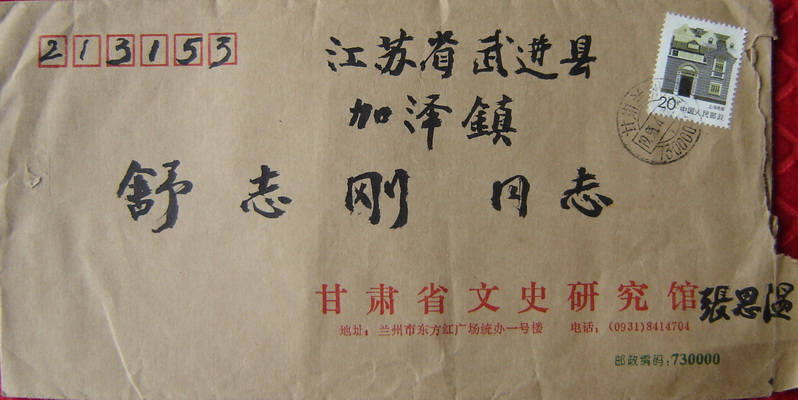 213153
江苏省武进县
加泽鎮
舒志刚 同志
20分
上海民居
中国人民邮政
730000
甘肃省文史研究馆 張思温
地址：兰州市东方红广场统办一号楼 电话：(0931)8414704
邮政编码：730000